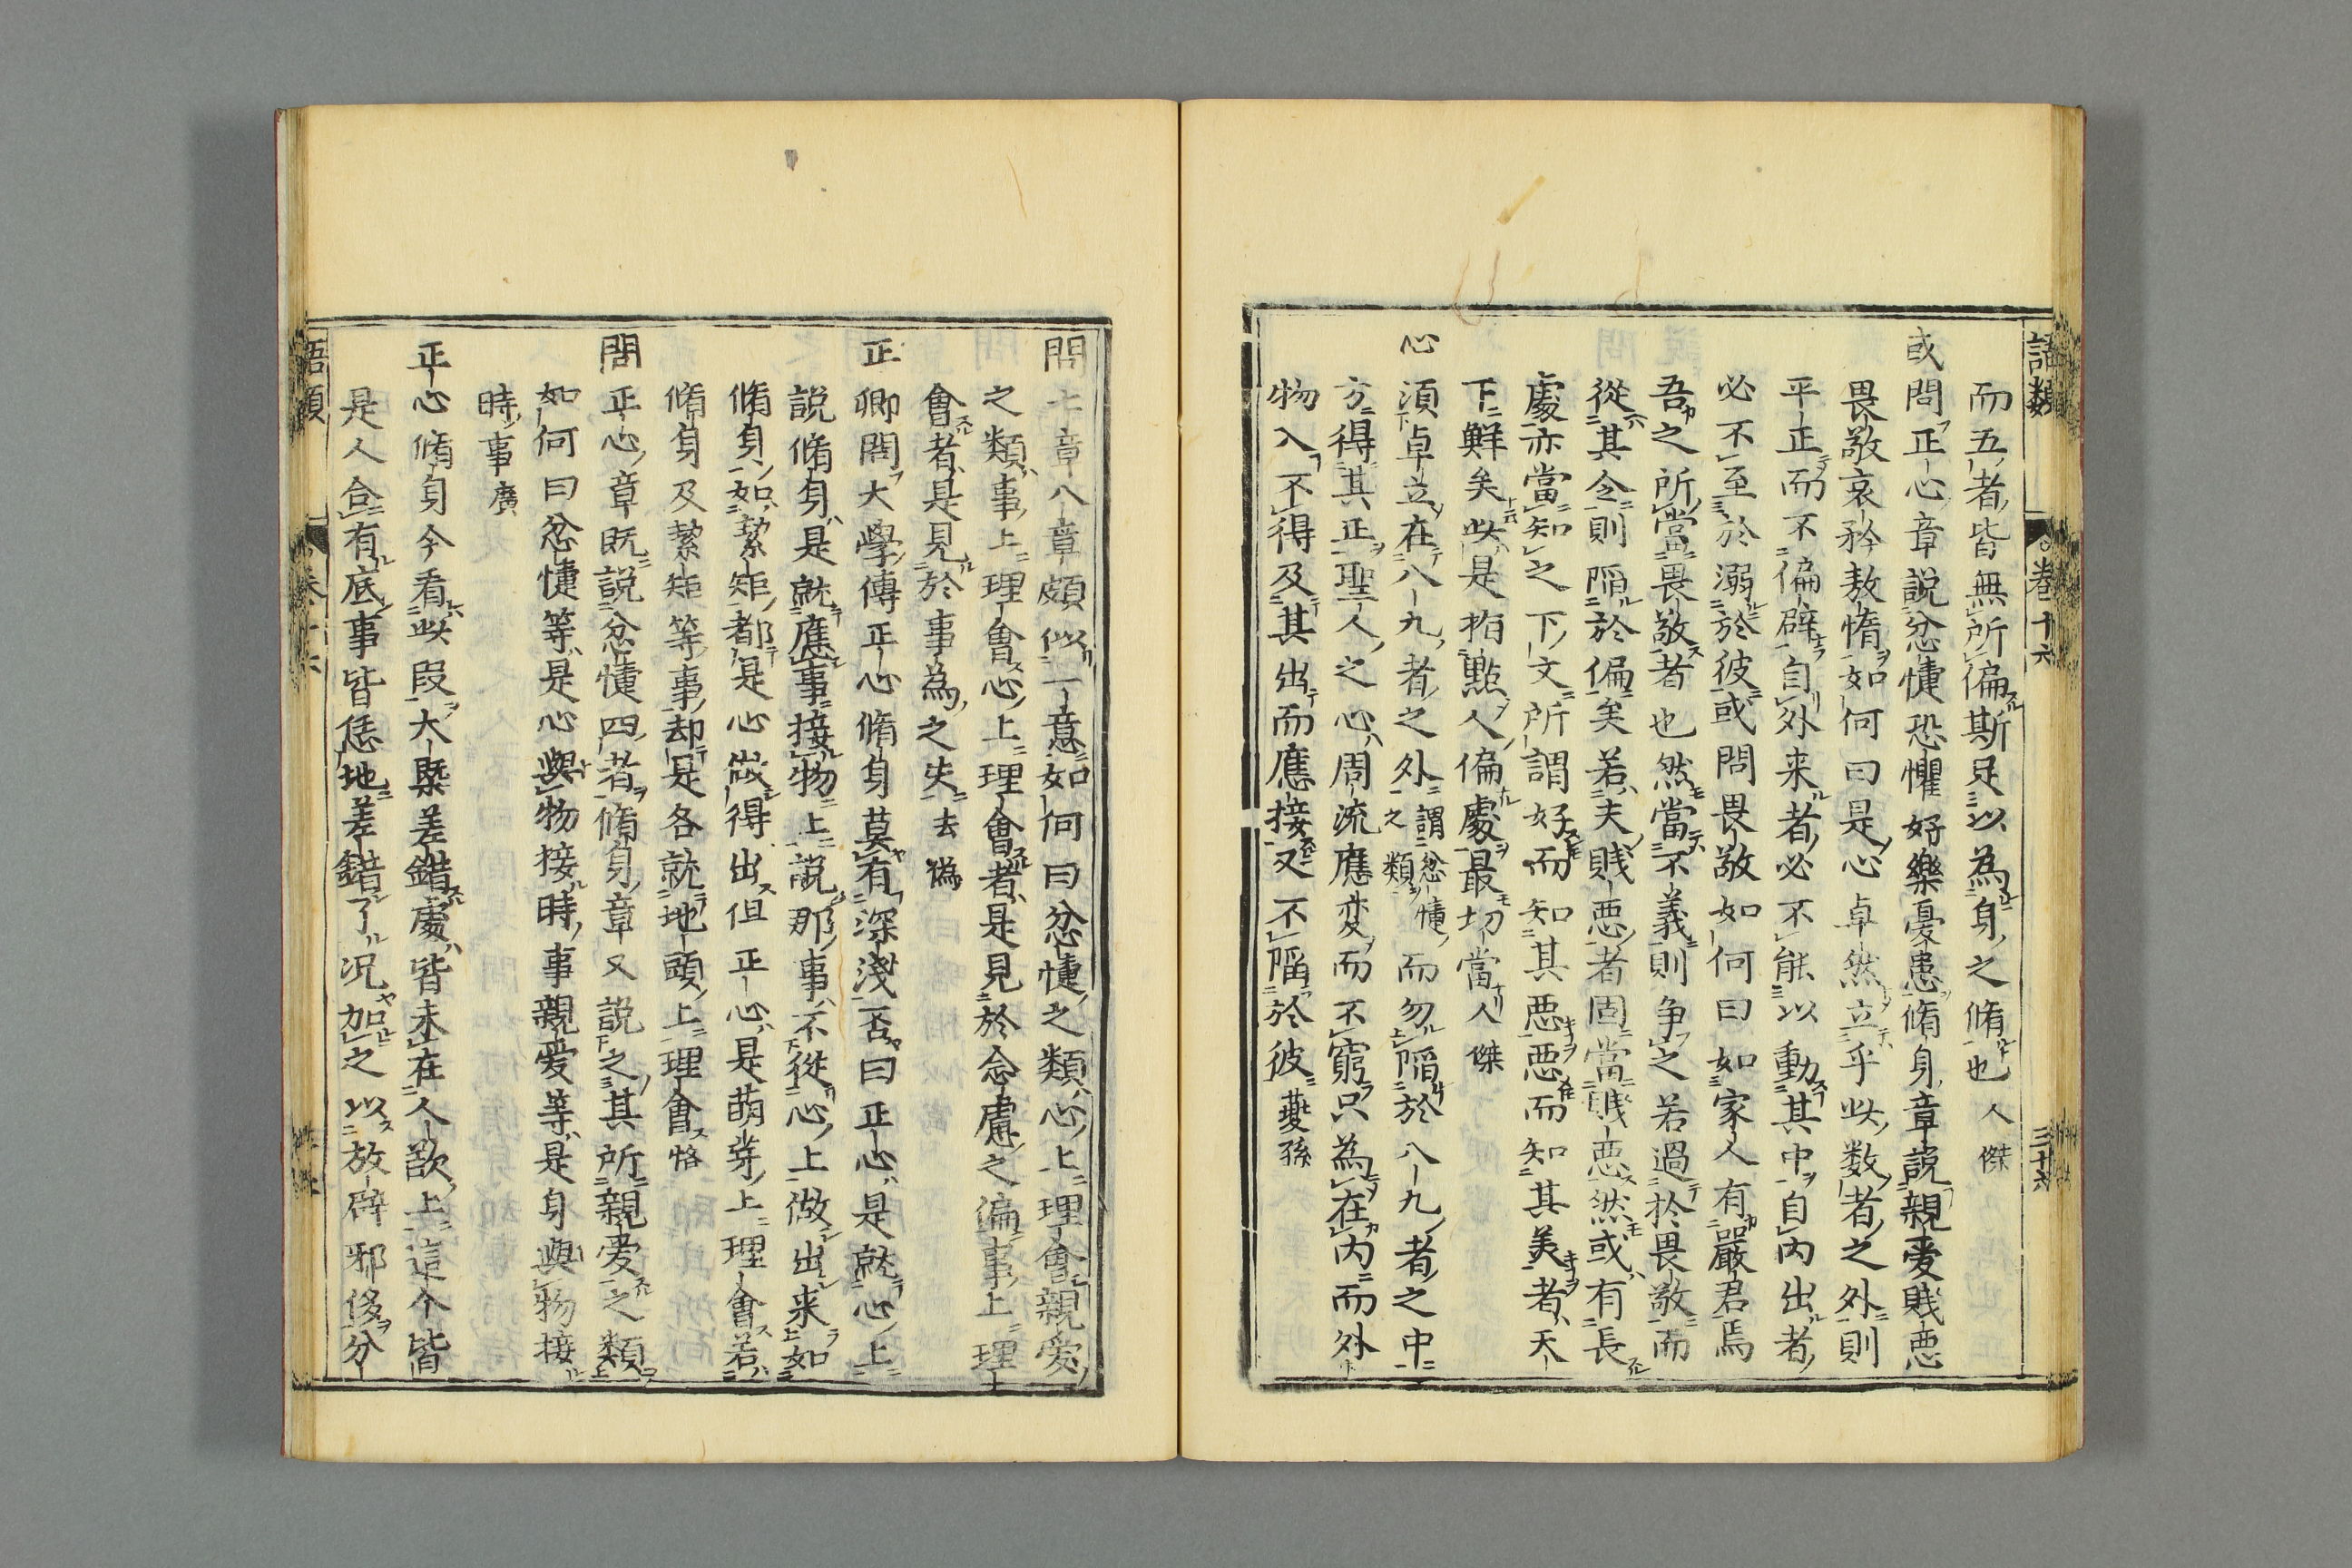 語類 卷十六 三十六
而五者皆無所偏斯足以為身之脩也人傑
或問正心章說忿懥恐懼好樂憂患脩身章說親愛賤惡
畏敬哀矜敖惰如何曰是心卓然立乎此數者之外則
平正而不偏辟自外来者必不能以動其中自內出者
必不至於溺於彼或問畏敬如何曰如家人有嚴君焉
吾之所當畏敬者也然當不義則争之若過於畏敬而
從其令則陷於偏矣若夫賤惡者固當賤惡然或有長
處亦當知之下文所謂好而知其惡惡而知其美者天
下鮮矣此是指點人偏處最切當人傑
心須卓立在八九者之外謂忿懥之類而勿陷於八九者之中
方得其正聖人之心周流應变而不窮只為在內而外
物入不得及其出而應接又不陷於彼夔孫
問七章八章頗似一意如何曰忿懥之類心上理會親愛
之類事上理會心上理會者是見於念慮之偏事上理
會者是見於事為之失去偽
正卿問大學傳正心脩身莫有深淺否曰正心是就心上
說脩身是就應事接物上說那事不從心上做出来如
脩身如絜矩都是心做得出但正心是萌芽上理會若
脩身及絜矩等事却是各就地頭上理會恪
問正心章既說忿懥四者脩身章又說之其所親愛之類
如何曰忿懥等是心與物接時事親愛等是身與物接
時事廣
正心脩身今看此段大槩差錯處皆未在人欲上這个皆
是人合有底事皆恁地差錯了况加之以放辟邪侈分
語類 卷十六